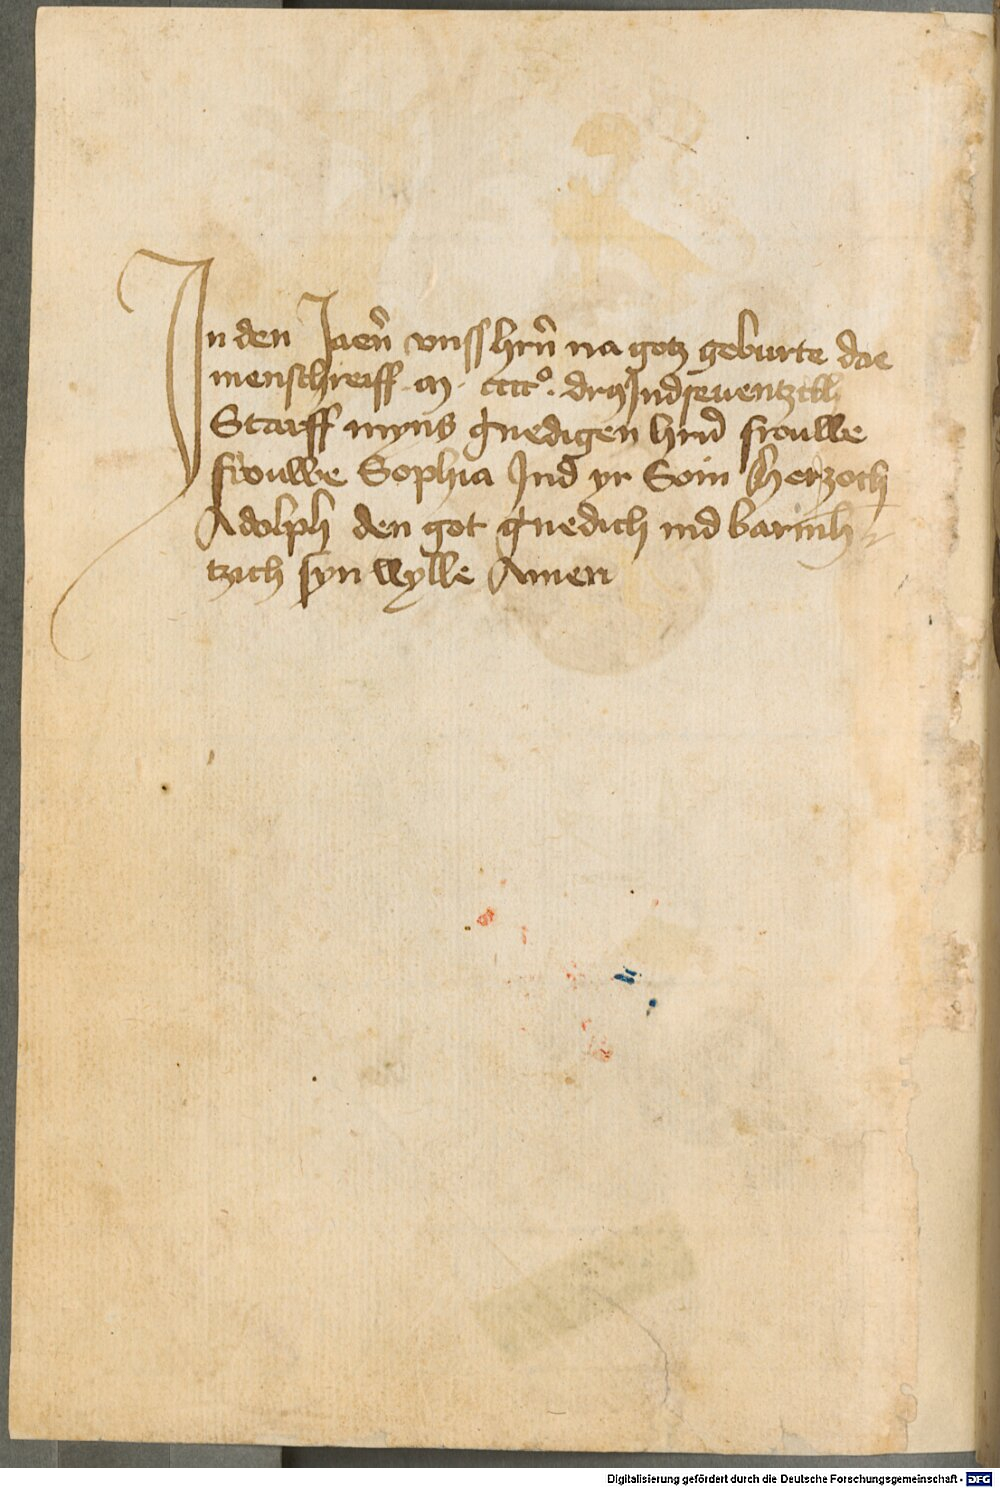 In den Jaeñ vnss hrñ na gotz geburte doe
menschreiff · m · cccc° · dry Ind seuentzich
Starff myns gnedigen hrñ frouwe
frouwe Sophia Ind yr Soin Herzoch
Adolph den got gnedich ind barmh-
tzich syn wylle Amen
Digitalisierung gefördert durch die Deutsche Forschungsgemeinschaft - DFG